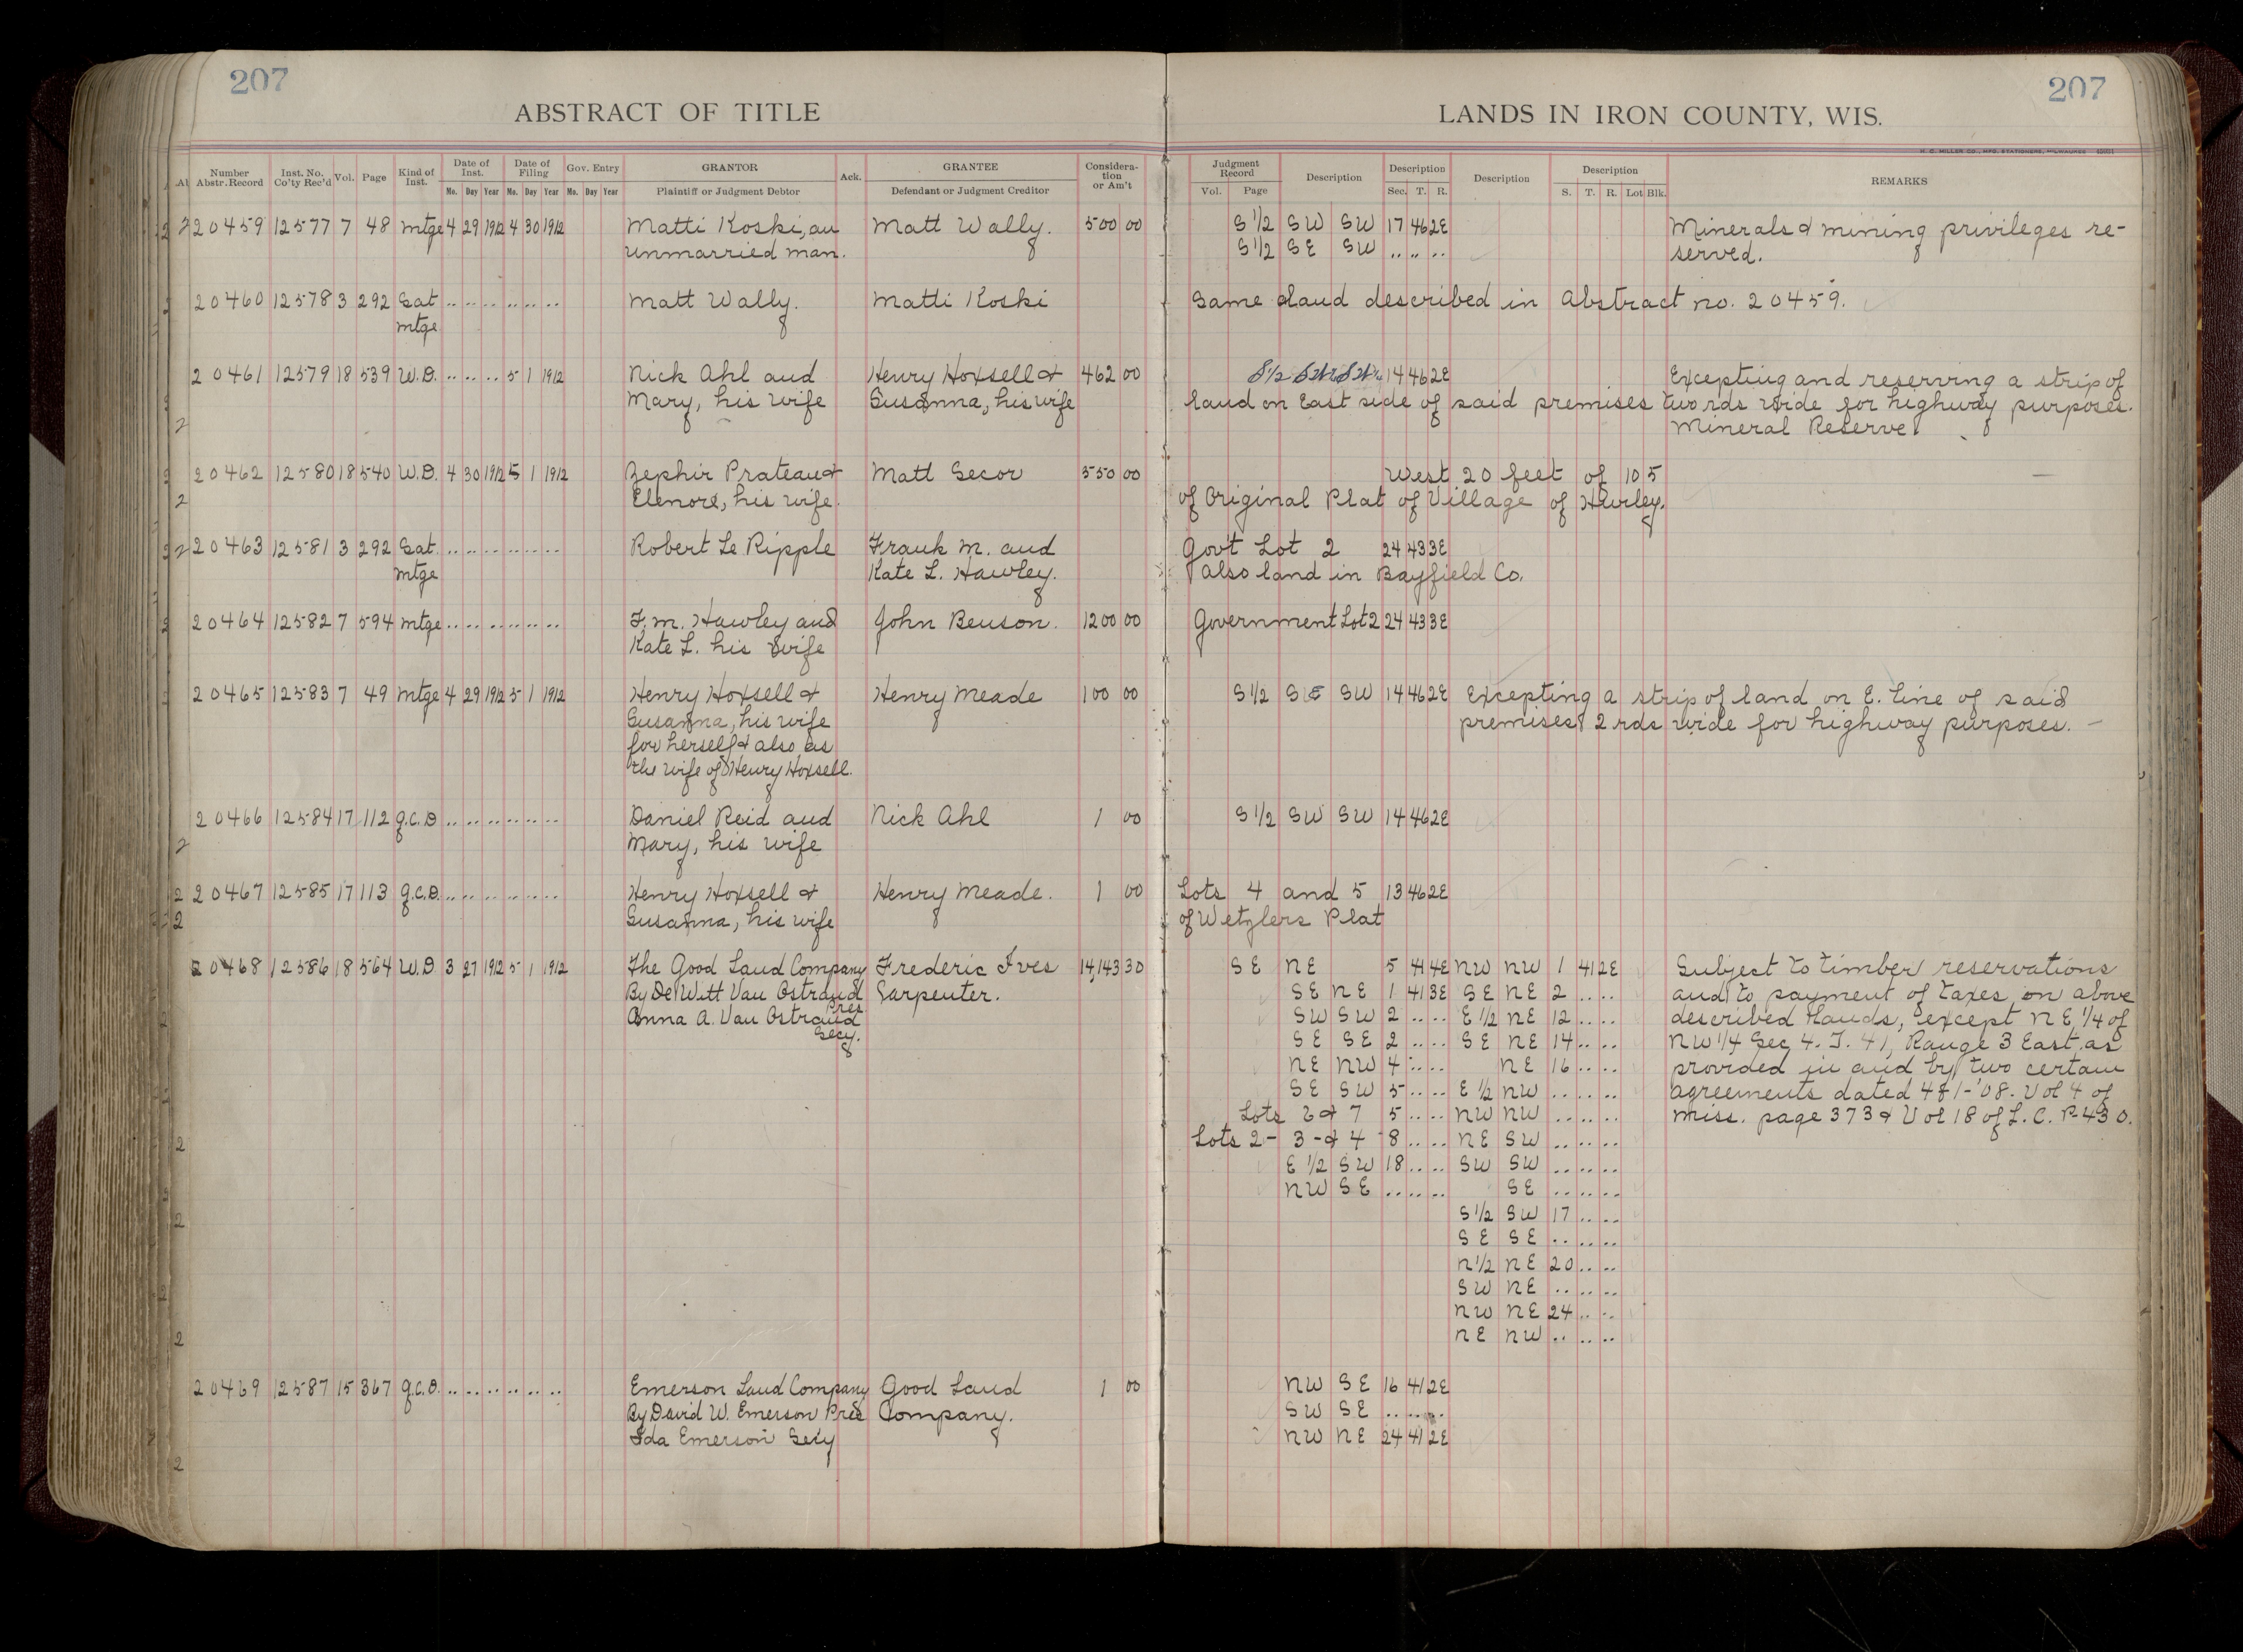 207
207
ABSTRACT OF TITLE
LANDS IN IRON COUNTY, WIS.
Number Abstr. Record Inst. No. Co'ty Rec'd Vol. Page Kind of Inst. Date of Inst. Mo. Day Year Date of Filing Mo. Day Year Gov. Entry Mo. Day Year GRANTOR Plaintiff or Judgment Debtor Ack. GRANTEE Defendant or Judgment Creditor Considera-tion or Am't
Judgment Record Vol. Page Description Description Sec. T. R. Description Description S. T. R. Lot Blk. REMARKS
20459 12577 7 48 Mtge 4 29 1912 4 30 1912 Matti Koski, an Matt Wally. 500 00 S 1/2 SW SW 17 46 2E Minerals & mining privileges re-
unmarried man. S 1/2 SE SW .. .. .. served.
20460 12578 3 292 Sat .. .. .. .. .. .. Matt Wally. Matti Koski Same land described in Abstract no. 20459.
Mtge
20461 12579 18 539 W.D. .. .. .. 5 1 1912 Nick Ahl and Henry Hoxsell & 462 00 S 1/2 14 46 2E Excepting and reserving a strip of
Mary, his wife Susanna, his wife land on East side of said premises two rds wide for highway purposes.
Mineral Reserve.
20462 12580 18 540 W.D. 4 30 1912 5 1 1912 Zephir Prateau & Matt Secor 550 00 West 20 feet of 10 5
Elenore, his wife. of Original Plat of Village of Hurley.
20463 12581 3 292 Sat. .. .. .. .. .. .. Robert Le Ripple Frank M. and Gov't Lot 2 24 43 3E
Mtge Kate L. Hawley. Also land in Bayfield Co.
20464 12582 7 594 Mtge .. .. .. .. .. .. F. M. Hawley and John Benson. 1200 00 Government Lot 2 24 43 3E
Kate L. his wife
20465 12583 7 49 Mtge 4 29 1912 5 1 1912 Henry Hoxsell & Henry Meade 100 00 S 1/2 SE SW 14 46 2E Excepting a strip of land on E. line of said
Susanna, his wife premises 2 rds wide for highway purposes.
for herself & also as
the wife of Henry Hoxsell.
20466 12584 17 112 Q.C.D .. .. .. .. .. .. Daniel Reid and Nick Ahl 1 00 S 1/2 SW SW 14 46 2E
Mary, his wife
20467 12585 17 113 Q.C.D. .. .. .. .. .. .. Henry Hoxsell & Henry Meade. 1 00 Lots 4 and 5 13 46 2E
Susanna, his wife of Wetzlers Plat
20468 12586 18 564 W.D 3 27 1912 5 1 1912 The Good Land Company Frederic Ives 14,143 30 SE NE 5 41 4E NW NW 1 41 2E Subject to timber reservations
By De Witt Van Ostrand Carpenter. SE NE 1 41 3E SE NE 2 .. .. and to payment of taxes on above
Pres.
Anna A. Van Ostrand SW SW 2 .. .. E 1/2 NE 12 .. .. described lands, except NE 1/4 of
Secy. SE SE 2 .. .. SE NE 14 .. .. NW 1/4 Sec 4. T. 41, Range 3 East as
NE NW 4 .. .. NE 16 .. .. provided in and by two certain
SE SW 5 .. .. E 1/2 NW .. .. .. agreements dated 4-1-'08. Vol 4 of
Lots 6 & 7 5 .. .. NW NW .. .. .. Miss. page 373 & Vol 18 of L. C. P. 430.
Lots 2 - 3 - & 4 8 .. .. NE SW .. .. ..
E 1/2 SW 18 .. .. SW SW .. .. ..
NW SE .. .. .. SE .. .. ..
S 1/2 SW 17 .. ..
SE SE .. .. ..
N 1/2 NE 20 .. ..
SW NE .. .. ..
NW NE 24 .. ..
NE NW .. .. ..
20469 12587 15 367 Q.C.D. .. .. .. .. .. .. Emerson Land Company Good Land 1 00 NW SE 16 41 2E
By David W. Emerson Pres Company. SW SE .. .. ..
Ida Emerson Secy NW NE 24 41 2E